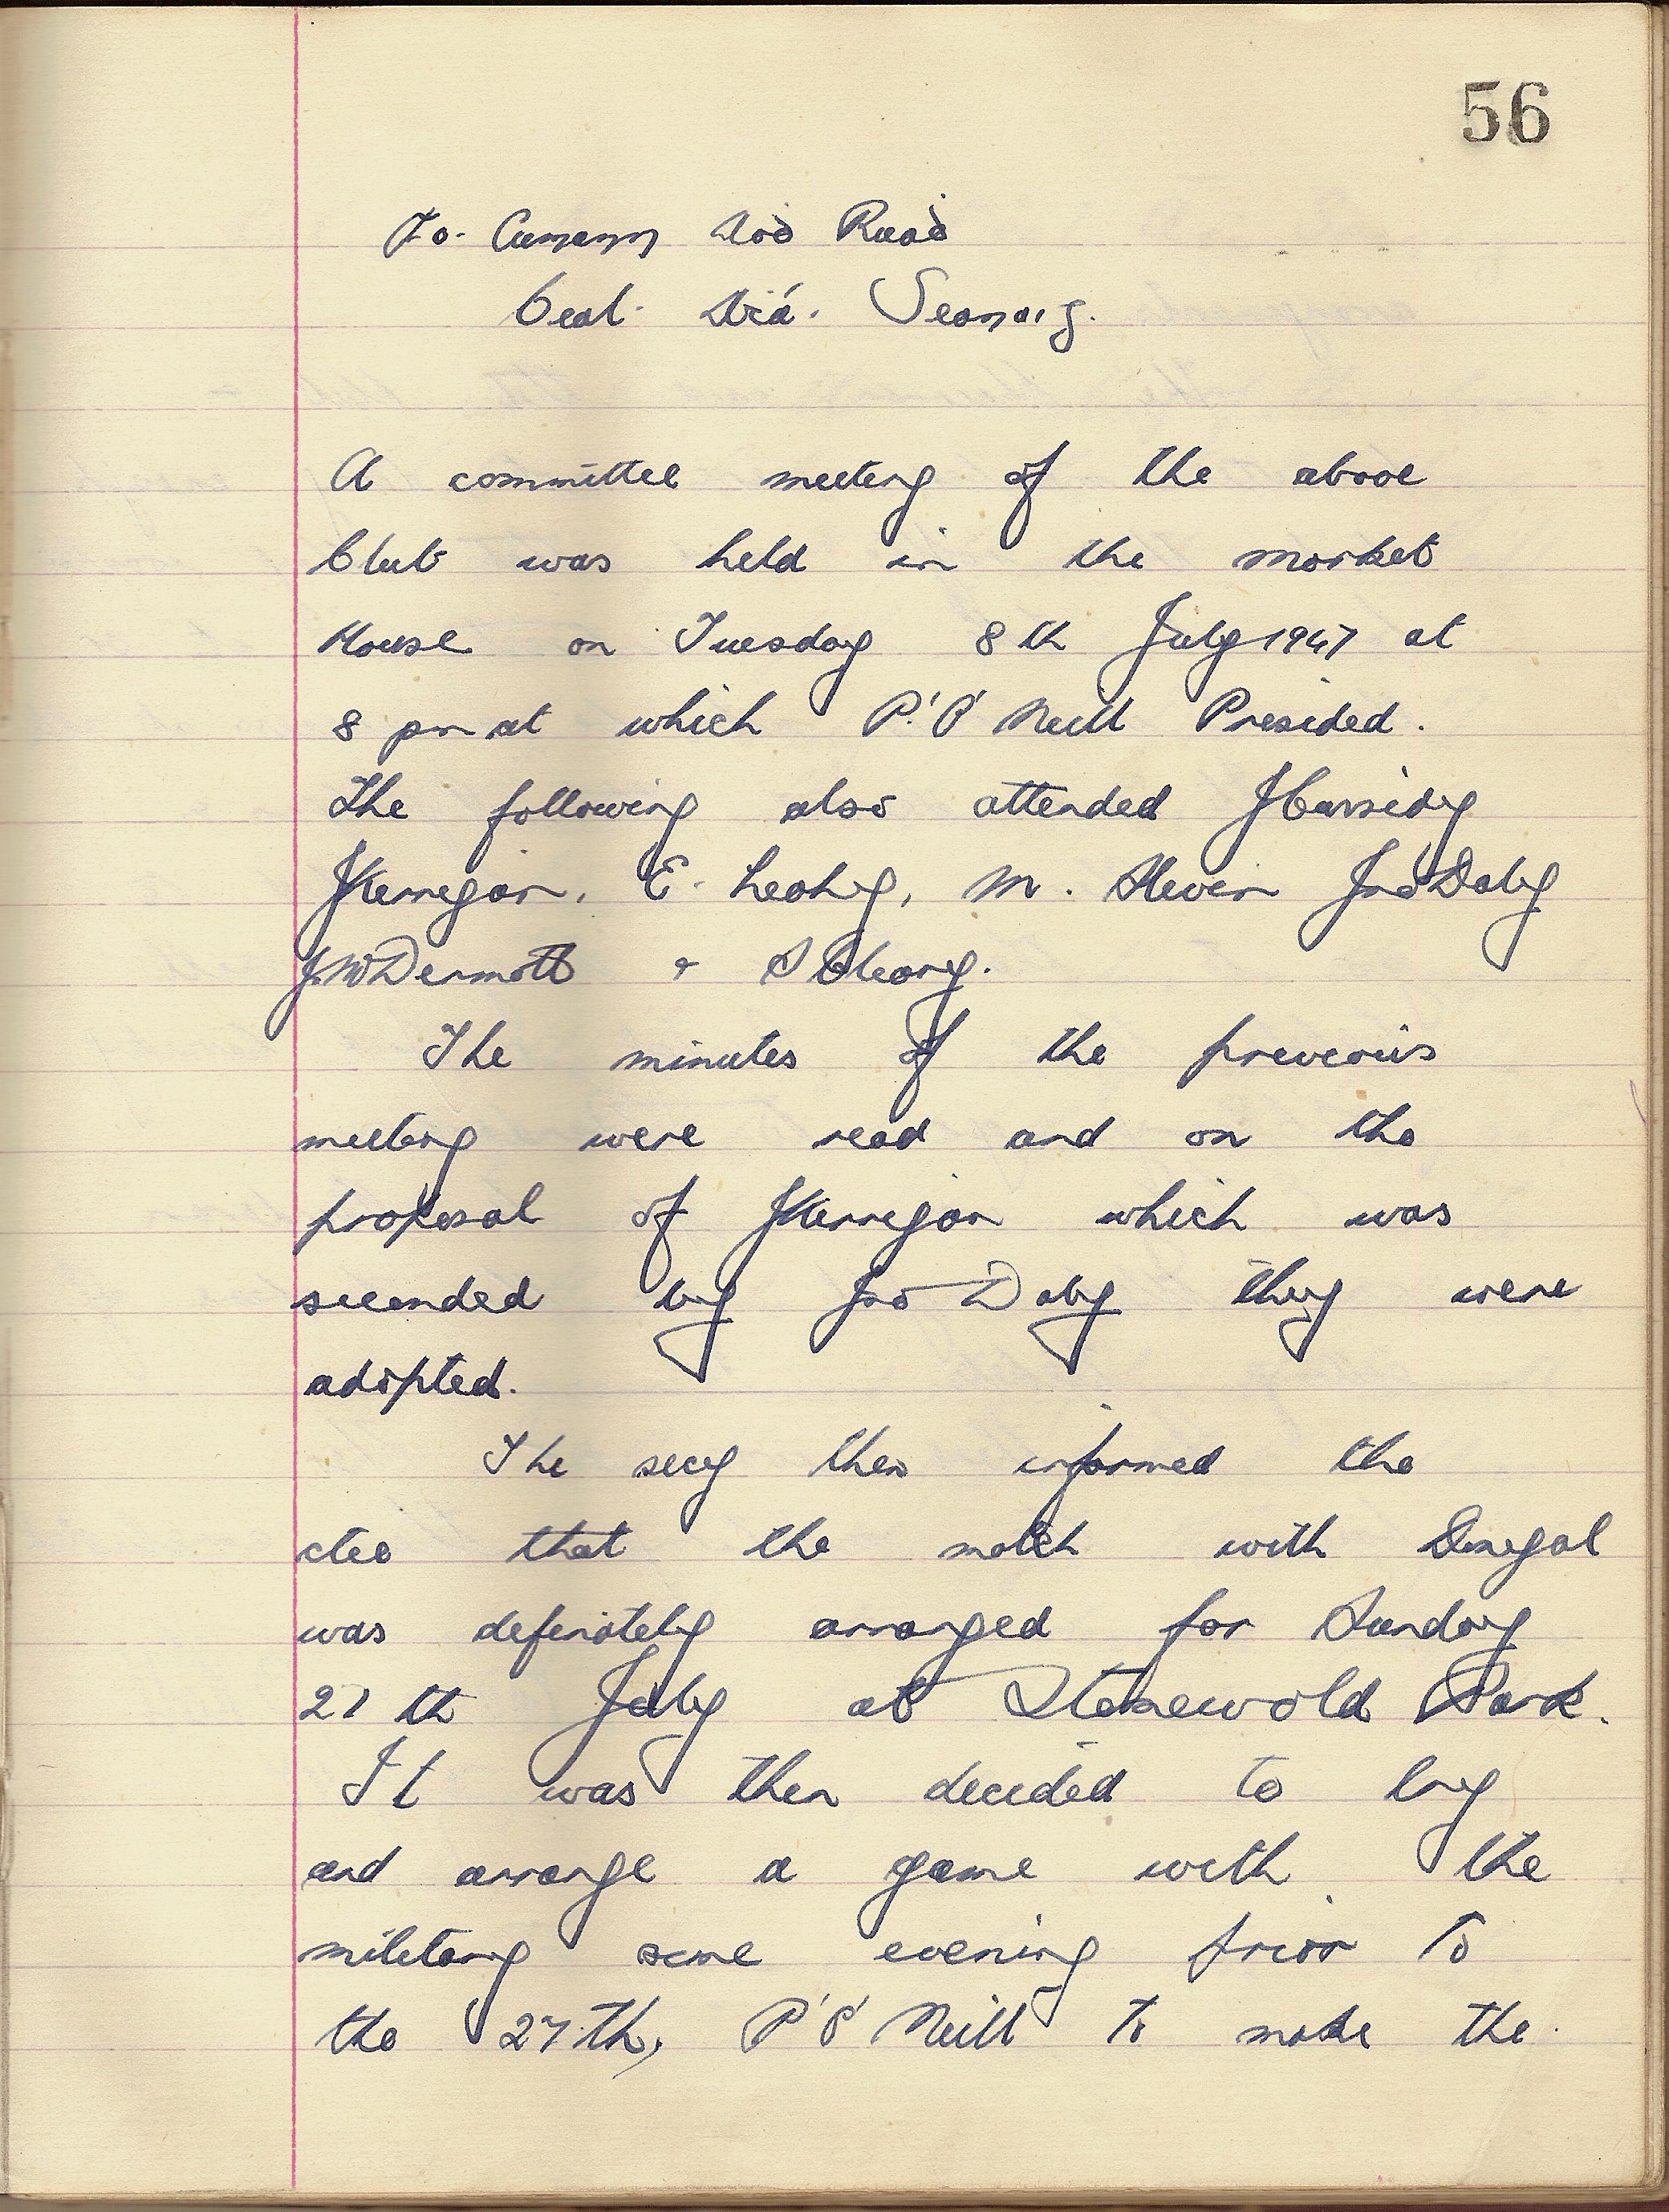 56
To. Cumann Aoḋ Ruaḋ
Beal. Aṫá. Seanaig.
A committee meeting of the above
Club was held in the market
House on Tuesday 8th July 1947 at
8 pm at which P. O'Neill Presided.
The following also attended J Cassidy
J Kerrigan, E. Leahy, M. Slevin Jno Daly
J. McDermott & S Cleary.
The minutes of the previous
meeting were read and on the
proposal of J Kerrigan which was
seconded by Jno Daly they were
adopted.
The secy then informed the
ctee that the match with Donegal
was definately arranged for Sunday
27th July at Stonewold Park.
It was then decided to try
and arrange a game with the
military some evening prior to
the 27th, P O'Neill to make the